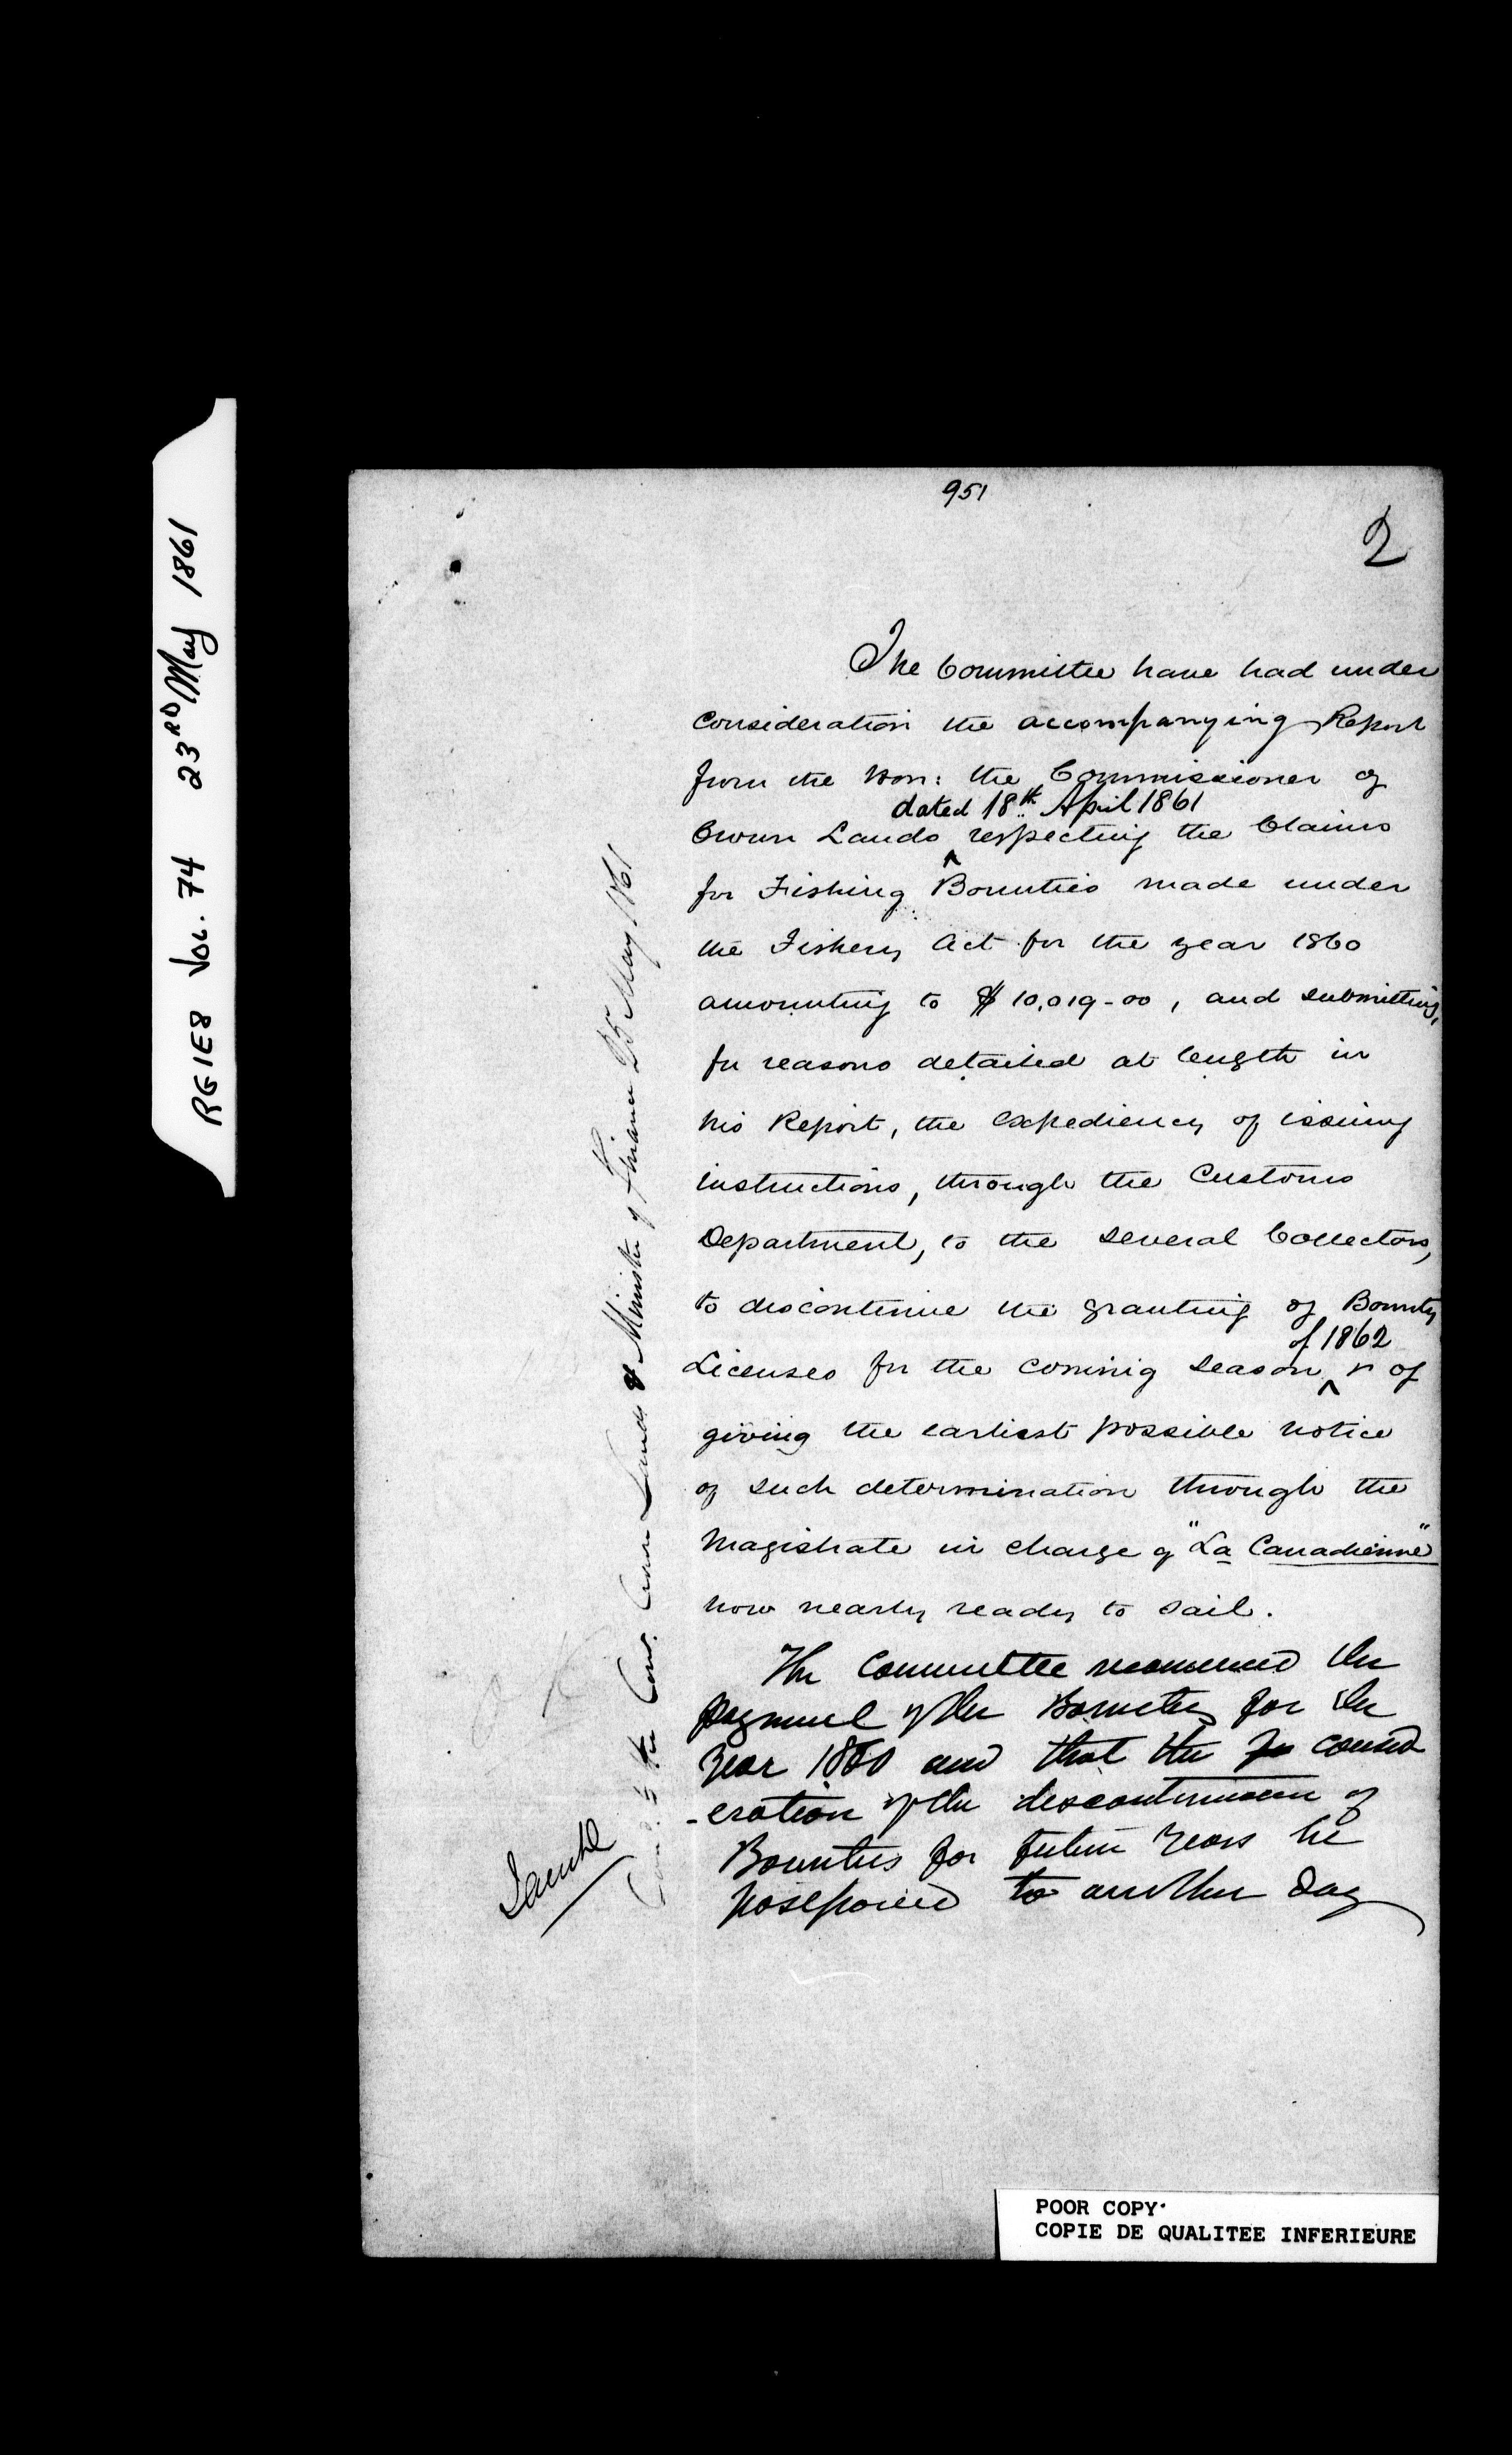 RG1E8 Vol. 74 23RD May 1861
951
2
The Committee have had under
consideration the accompanying Report
from the Hon: the Commissioner of
dated 18th April 1861
Crown Lands ^ respecting the Claims
for Fishing Bounties made under
the Fishery Act for the year 1860
amounting to $10,019-00, and submitting,
for reasons detailed at length in
his Report, the expediency of issuing
instructions, through the Customs
Department, to the several Collectors,
to discontinue the granting of Bounty
of 1862
Licenses for the coming Season ^ & of
giving the earliest possible notice
of such determination through the
Magistrate in charge of "La Canadienne"
now nearly ready to sail.
The Committee recommend the
payment of the Bounties for the
year 1860 and that the consid
-eration of the discontinuance of
Bounties for future years be
postponed to another day
to the Com. Crown Lands & Minister of Finance 25 May 1861
POOR COPY
COPIE DE QUALITEE INFERIEURE